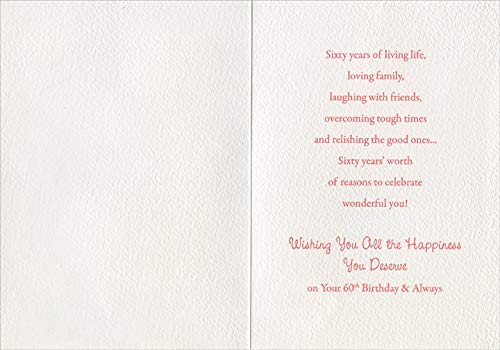 Sixty years of living life,
loving family,
laughing with friends,
overcoming tough times
and relishing the good ones...
Sixty years' worth
of reasons to celebrate
wonderful you!
Wishing You All the Happiness
You Deserve
on Your 60th Birthday & Always